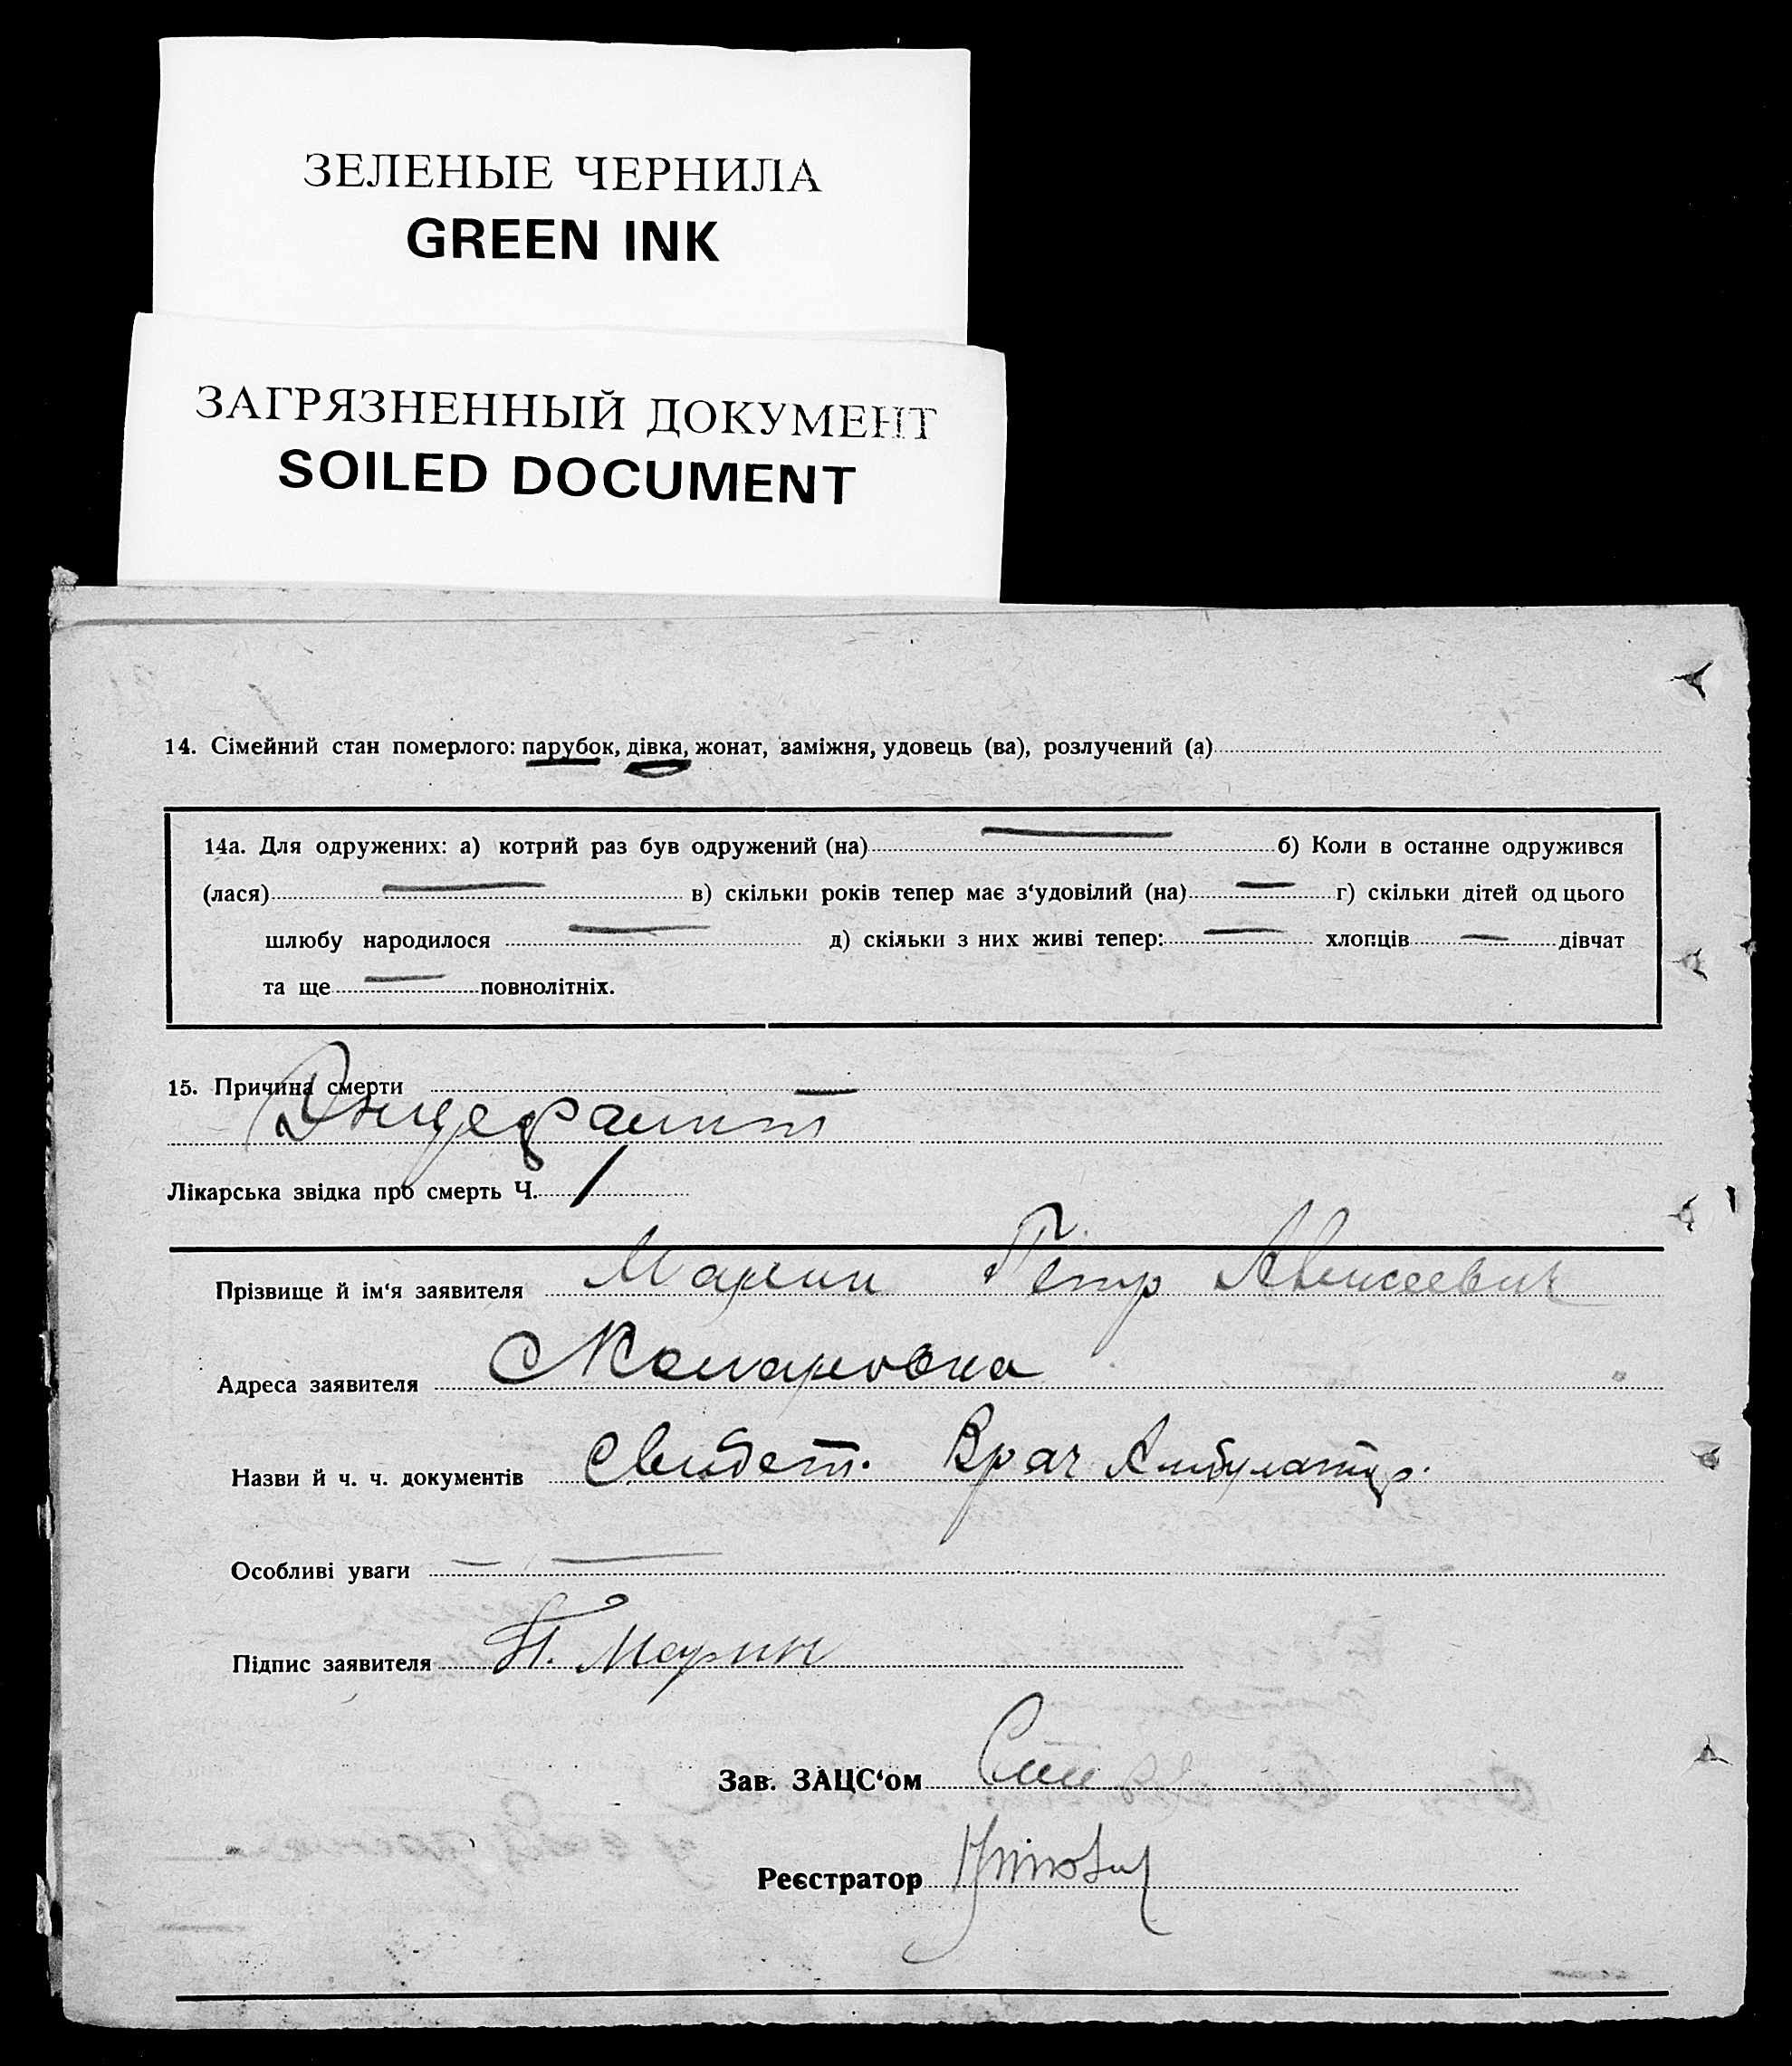 ЗЕЛЕНЫЕ ЧЕРНИЛА
GREEN INK
ЗАГРЯЗНЕННЫЙ ДОКУМЕНТ
SOILED DOCUMENT
14. Сімейний стан померлого: парубок, дівка, жонат, заміжня, удовець (ва), розлучений (а)
14а. Для одружених: а) котрий раз був одружений (на) — б) Коли в останнє одружився
(лася) — в) скільки років тепер має з‘удовілий (на) — г) скільки дітей од цього
шлюбу народилося — д) скільки з них живі тепер: — хлопців — дівчат
та ще — повнолітніх.
15. Причина смерти —
Энцефалит
Лікарська звідка про смерть Ч. /
Прізвище й ім‘я заявителя Марин Петр Алексеевич
Адреса заявителя Комаровка
Назви й ч. ч. документів Свидет. Врач Амбулатор.
Особливі уваги — —
Підпис заявителя П. Марин
Зав. ЗАЦС‘ом
Реєстратор